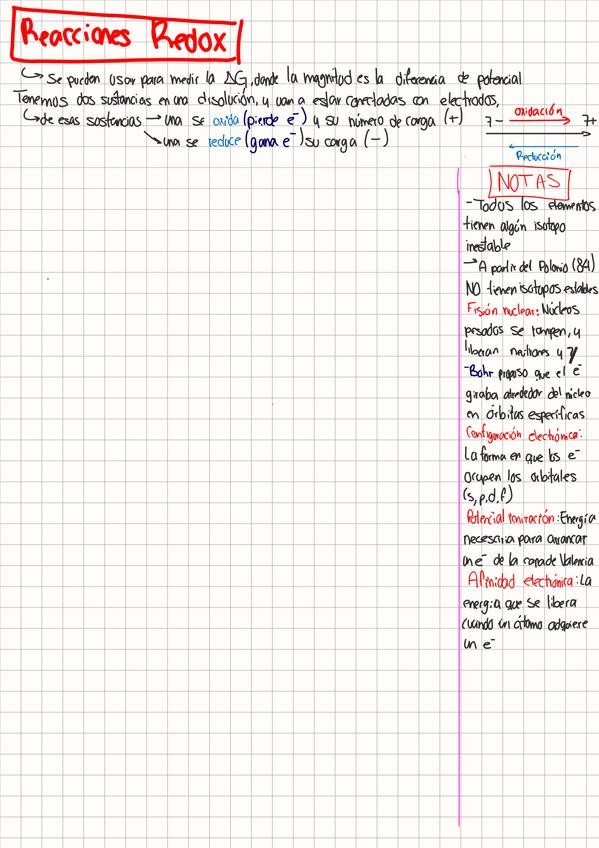 Reacciones Redox
↳ Se pueden usar para medir la ΔG, donde la magnitud es la diferencia de potencial
Tenemos dos sustancias en una disolución, y van a estar conectadas con electrodos,
↳ de esas sustancias → una se oxida (pierde e⁻) y su número de carga (+)
↘ una se reduce (gana e⁻) su carga (-)
oxidación
7- 7+
Reducción
NOTAS
- Todos los elementos
tienen algún isotopo
inestable
→ A partir del Polonio (84)
NO tienen isotopos estables
Fisión nuclear: Núcleos
pesados se rompen, y
liberan neutrones y γ
- Bohr propuso que el e⁻
giraba alrededor del núcleo
en órbitas específicas
Configuración electrónica:
La forma en que los e⁻
ocupen los orbitales
(s,p,d,f)
Potencial ionización: Energía
necesaria para arrancar
un e⁻ de la capa de Valencia
Afinidad electrónica: La
energia que se libera
cuando un átomo adquiere
un e⁻